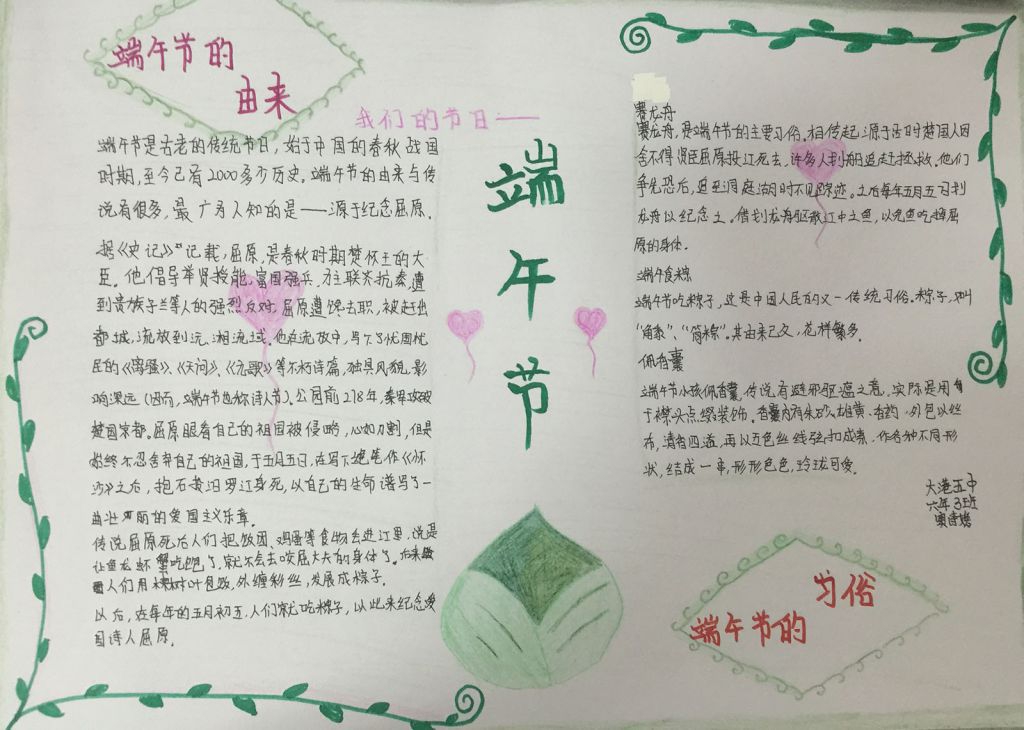 端午节的
由来
端午节是古老的传统节日，始于中国的春秋战国
时期，至今已有2000多少历史。端午节的由来与传
说有很多，最广为人知的是——源于纪念屈原。
据《史记》记载，屈原，是春秋时期楚怀王的大
臣。他倡导举贤授能，富国强兵，力主联齐抗秦，遭
到贵族子兰等人的强烈反对，屈原遭馋去职，被赶出
都城，流放到沅、湘流域。他在流放中，写下了忧国忧
民的《离骚》、《天问》、《九歌》等不朽诗篇，独具风貌，影
响深远（因而，端午节也称诗人节）。公园前278年，秦军攻破
楚国京都。屈原眼看自己的祖国被侵略，心如刀割，但是
始终不忍舍弃自己的祖国，于五月五日，在写下绝笔作《怀
沙》之后，抱石投汨罗江身死，以自己的生命谱写了一
曲壮丽的爱国主义乐章。
传说屈原死后人们把饭团、鸡蛋等食物丢进江里，说是
让鱼龙虾蟹吃饱了，就不会去咬屈大夫的身体了。后来
人们用树叶包饭，外缠彩丝，发展成棕子。
以后，在每年的五月初五，人们就吃粽子，以此来纪念爱
国诗人屈原。
我们的节日——
端
午
节
赛龙舟
赛龙舟，是端午节的主要习俗。相传起源于古时楚国人因
舍不得贤臣屈原投江死去，许多人划船追赶拯救。他们
争先恐后，追至洞庭湖时不见踪迹。之后每年五月五日划
龙舟以纪念之。借划龙舟驱散江中之鱼，以免鱼吃掉屈
原的身体。
端午食粽
端午节吃粽子，这是中国人民的又一传统习俗。粽子，叫
“角黍”、“筒粽”。其由来已久，花样繁多。
佩香囊
端午节小孩佩香囊，传说有避邪驱瘟之意，实际是用
于襟头点缀装饰。香囊内有朱砂、雄黄、香药，外包以丝
布，清香四溢，再以五色丝线弦扣成索，作各种不同形
状，结成一串，形形色色，玲珑可爱。
大港五中
六年3班
端午节的
习俗